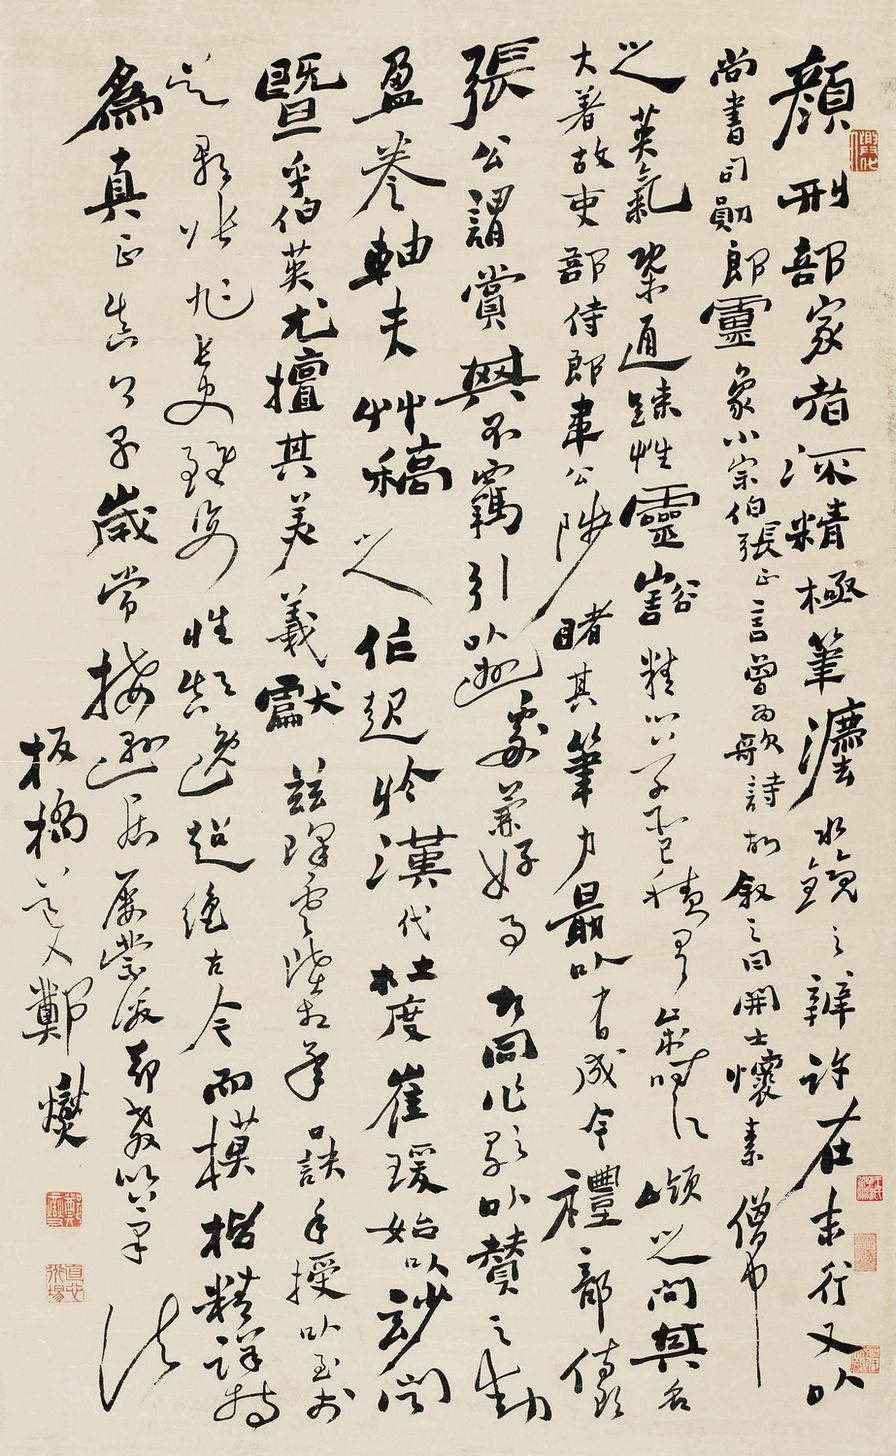 顏刑部家者深精極筆灋水鏡之辨許在末行又以
尚書司勳郎靈象小宗伯張正言曾為歌詩故敘之曰開士懷素僧中
之英氣槩通疎性靈豁精心積有歲時江嶺之間其名
大著故吏部侍郎韋公陟睹其筆力最以有成今禮部侍郎
張公謂賞其不羈引以遊處兼好事者同作歌以贊之動
盈卷軸夫艸稿之作起於漢代杜度崔瑗始以玅聞
暨乎伯英尤擅其美羲獻茲降虞陸相承口訣手授以至於
吳郡張旭長史雖姿性顛逸超絕古今而模楷精詳特
為真正真卿早歲常接遊居屢蒙激劝教以筆法
板橋道人鄭燮
直心道場